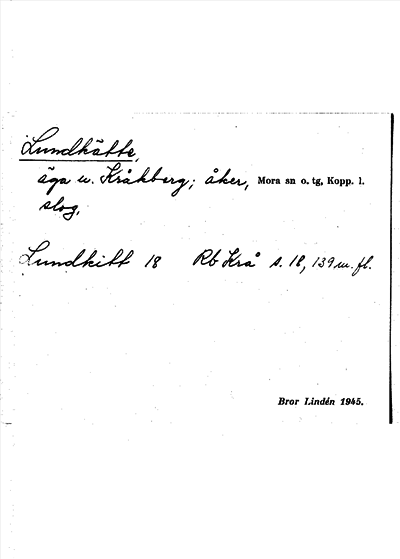 Lundkätte,
äga u. Kråkberg; åker, Mora sn o. tg, Kopp. l.
slog,
Lundkitt 18 Rb Krå s. 18, 139 m. fl.
Bror Lindén 1945.